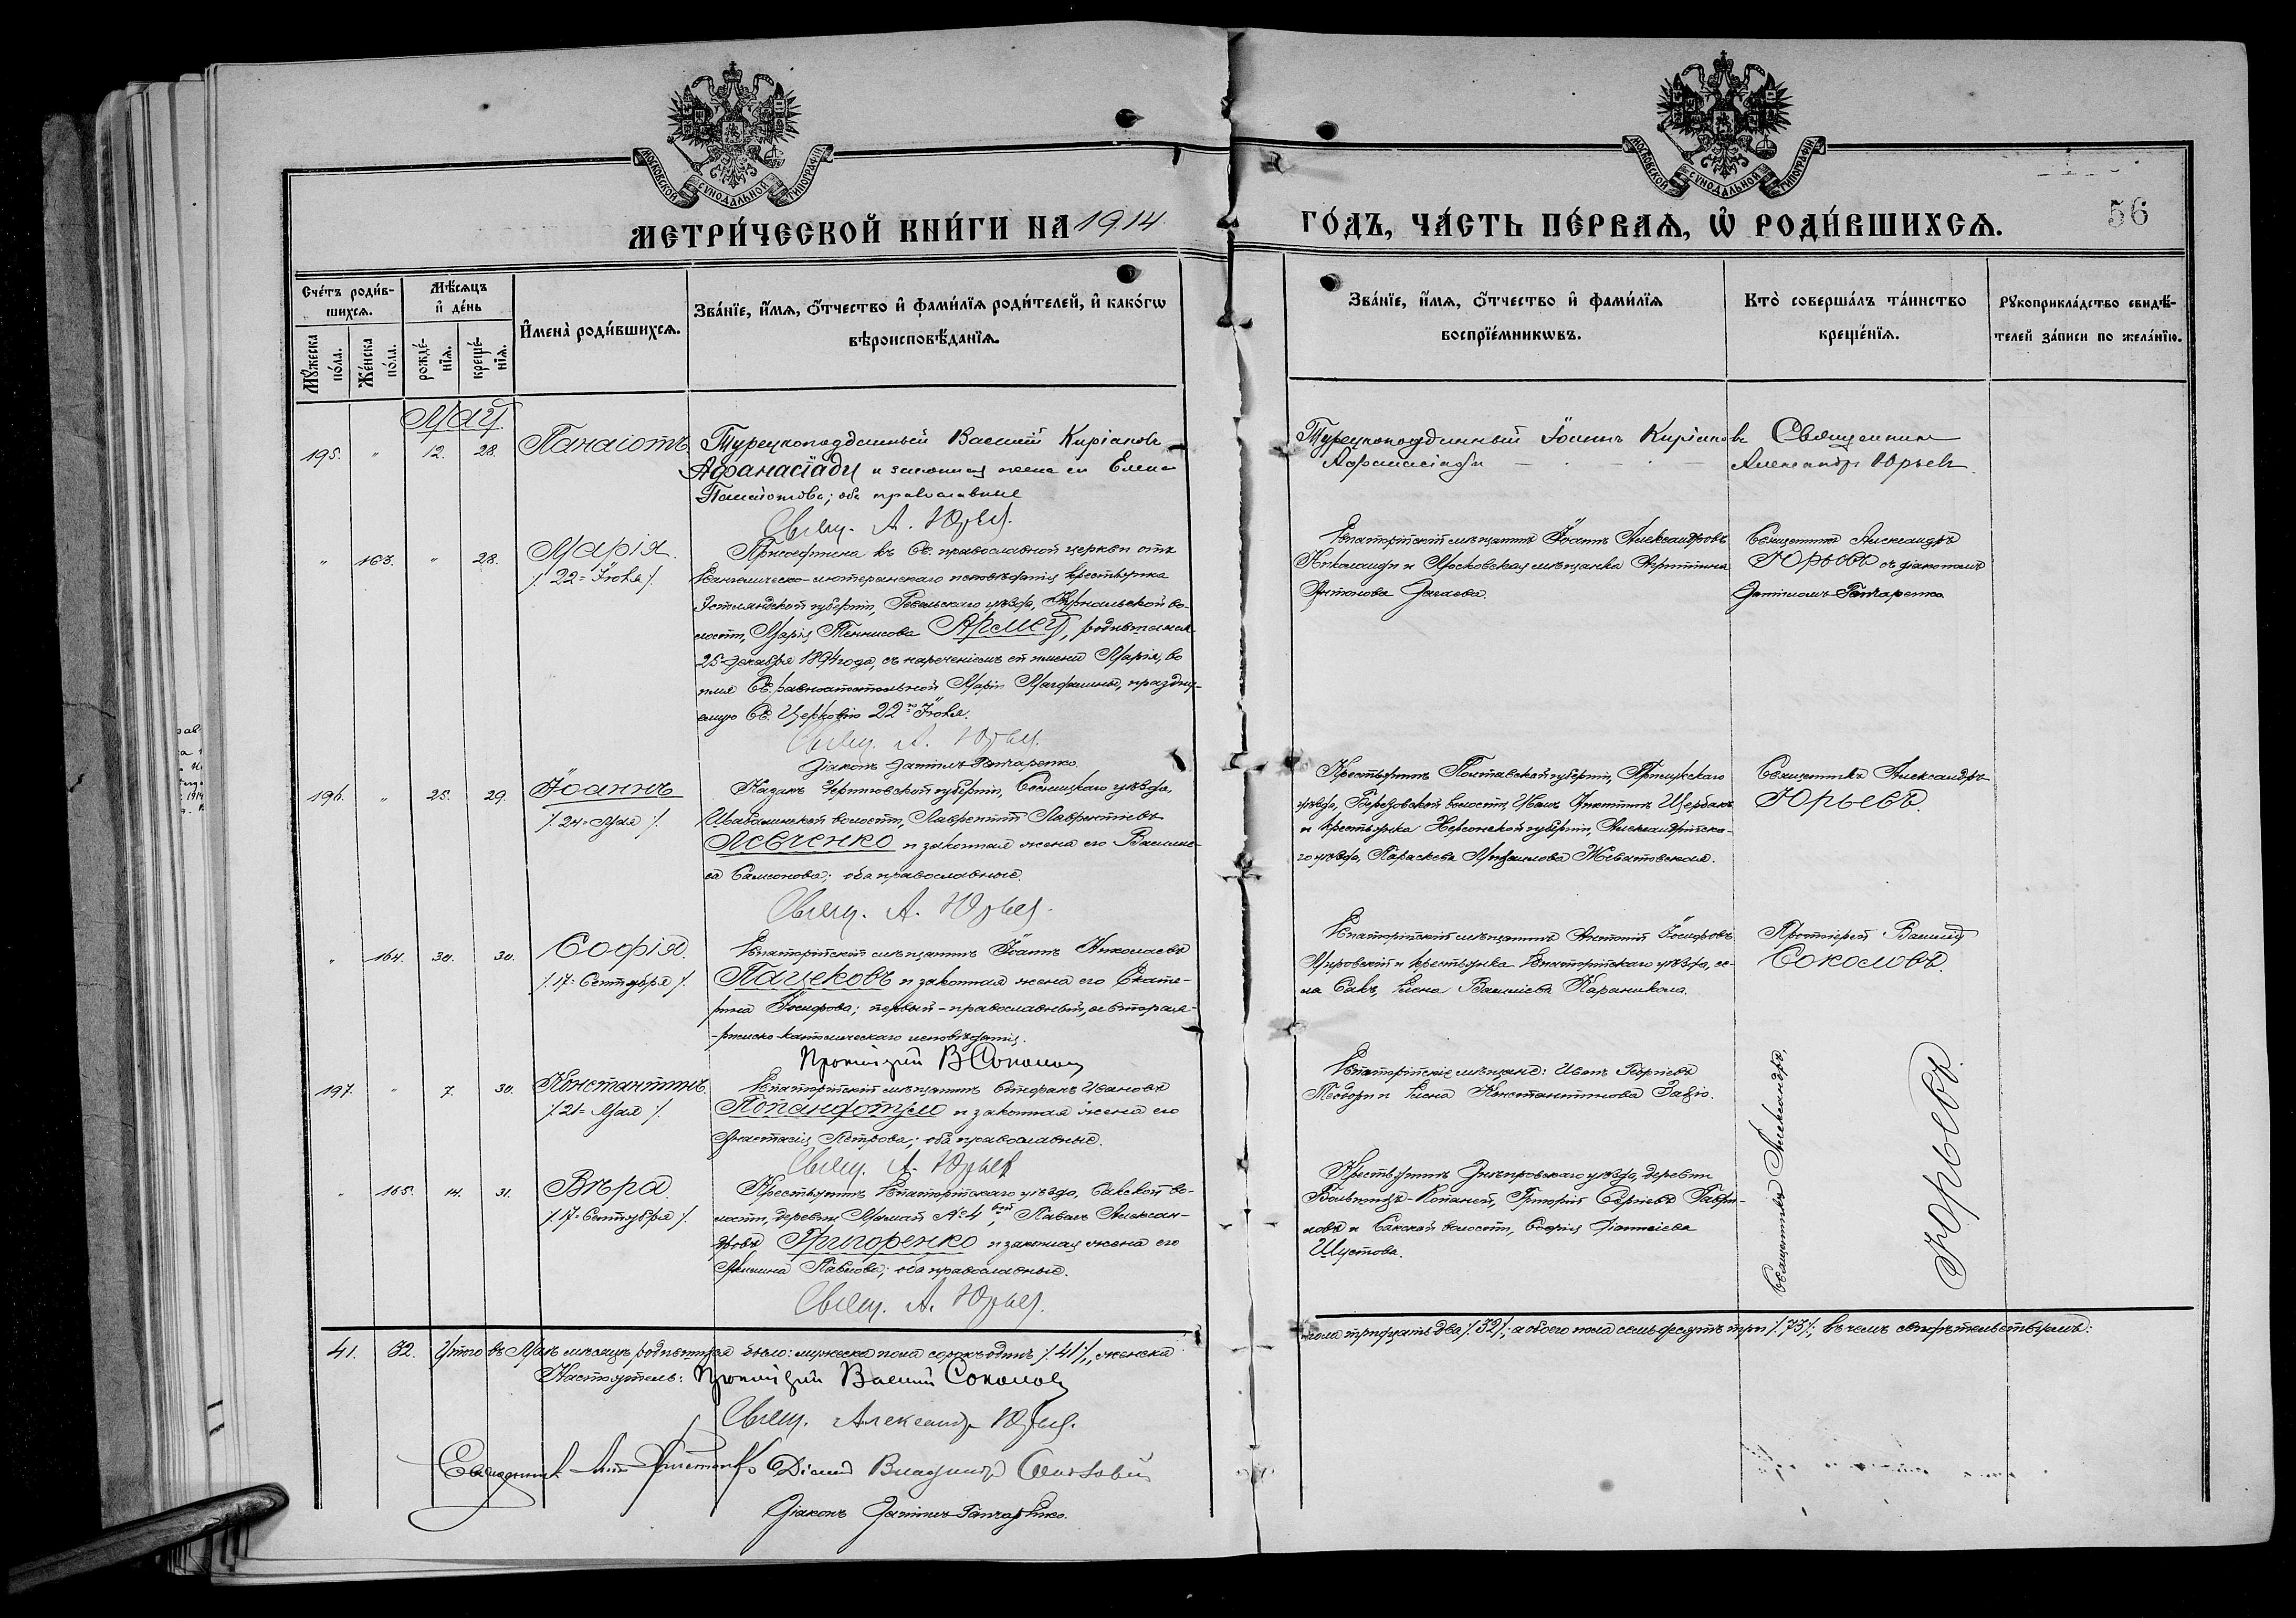 МОСКОВСКОЙ СѴНОДАЛЬНОЙ ТИПОГРАФІИ
МОСКОВСКОЙ СѴНОДАЛЬНОЙ ТИПОГРАФІИ
МЕТРИ́ЧЕСКОЙ КНИ́ГИ НА 1914
ГО́ДЪ, ЧА́СТЬ ПЕ́РВАѦ, Ѽ РОДИ́ВШИХСѦ.
56
Сче́тъ роди́в-
шихсѧ.
Мꙋ́жеска по́ла.
Же́нска по́ла.
Мѣ́сѧцъ
и҆ де́нь
рожде́-нїѧ.
креще́-нїѧ.
И҆мена̀ роди́вшихсѧ.
Зва́нїе, и҆́мѧ, ѻ҆́тчество и҆ фами́лїѧ роди́телей, и҆ како́гѡ
вѣроисповѣ́данїѧ.
Зва́нїе, и҆́мѧ, ѻ҆́тчество и҆ фами́лїѧ
воспрїе́мникѡвъ.
Кто̀ соверша́лъ та́инство
креще́нїѧ.
Рꙋкоприкла́дство свидѣ́-
телей за́писи по жела́нїю.
Май
195. " 12. 28. Панаіотъ
Турецкоподданный Василій Киріаковъ
Афанасіади и законная жена его Елена
Панаіотова; оба православные
Свящ. А. Юрьев.
Турецкоподданный Іоаннъ Киріаковъ
Афанасіади
Священникъ
Александръ Юрьевъ.
" 163. " 28. Марія
/. 22 = Іюля /.
Присоединена къ Св. православной церкви отъ
Евангелическо-лютеранскаго исповѣданія крестьянка
Эстляндской губерніи, Ревельскаго уѣзда, во-
лости, Марія Теннисова , родившаяся
25 Декабря 1894 года, съ нареченіемъ ей имени Марія, во
имя Св. равноапостольной Маріи Магдалины, праздну-
емую Св. Церковію 22го Іюля.
Свящ. А. Юрьев.
Діаконъ Даніилъ Гончаренко.
Евпаторійскій мѣщанинъ Іоаннъ Александровъ
Николаиди и Московская мѣщанка
Антонова
Священникъ Александръ
Юрьевъ съ діакономъ
Даніиломъ Гончаренко
196. " 25. 29. Іоаннъ
/. 24 = Мая /.
Казакъ Черниговской губерніи, Сосницкаго уѣзда,
волости, Лаврентій Лаврентіевъ
Левченко и законная жена его Василис-
са Самсонова; оба православные.
Свящ. А. Юрьев.
Крестьянинъ Полтавской губерніи, Прилукскаго
уѣзда, Березовской волости, Иванъ Щербакъ
и крестьянка Херсонской губерніи, Александрійска-
го уѣзда, Параскева Михаилова
Священникъ Александръ
Юрьевъ.
" 164. 30. 30. Софія
/. 17 = Сентября /.
Евпаторійскій мѣщанинъ Іоаннъ Николаевъ
Пацековъ и законная жена его Екате-
рина Іосифова; первый - православный, а вторая -
- римско-католическаго исповѣданія.
Протоіерей В. Соколовъ
Евпаторійскій мѣщанинъ Антоній Іосифовъ
и крестьянка Евпаторійскаго уѣзда, се-
ла Сакъ, Елена Василіева
Протоіерей Василій
Соколовъ.
197. " 7. 30. Константинъ.
/. 21 = Мая /.
Евпаторійскій мѣщанинъ Стефанъ Ивановъ
и законная жена его
Анастасія Петрова; оба православные.
Свящ. А. Юрьев
Евпаторійскіе мѣщане: Иванъ Георгіевъ
Теодори и Елена Константинова
Священникъ Александръ
Юрьевъ.
" 165. 14. 31. Вѣра
/. 17 = Сентября /.
Крестьянинъ Евпаторійскаго уѣзда, Сакской во-
лости, деревни №4, Павелъ Алексан-
дровъ Григоренко и законная жена его
Акилина Павлова; оба православные.
Свящ. А. Юрьев.
Крестьянинъ Днѣпровскаго уѣзда, деревни
Григорій Сергіевъ Гаври-
ловъ и Сакской волости, Софія
Шустова.
41. 32. Итого въ Маѣ мѣсяцѣ родившихся было: мужеска пола сорокъ одинъ /. 41 /., женска
пола тридцать два /. 32 /.; а обоего пола семьдесятъ три /. 73 /.; въ чемъ свидѣтельствуемъ:
Настоятель: Протоіерей Василій Соколовъ
Свящ. Александръ Юрьев.
Священникъ
Діаконъ Владиміръ
Діаконъ Даніилъ Гончаренко.